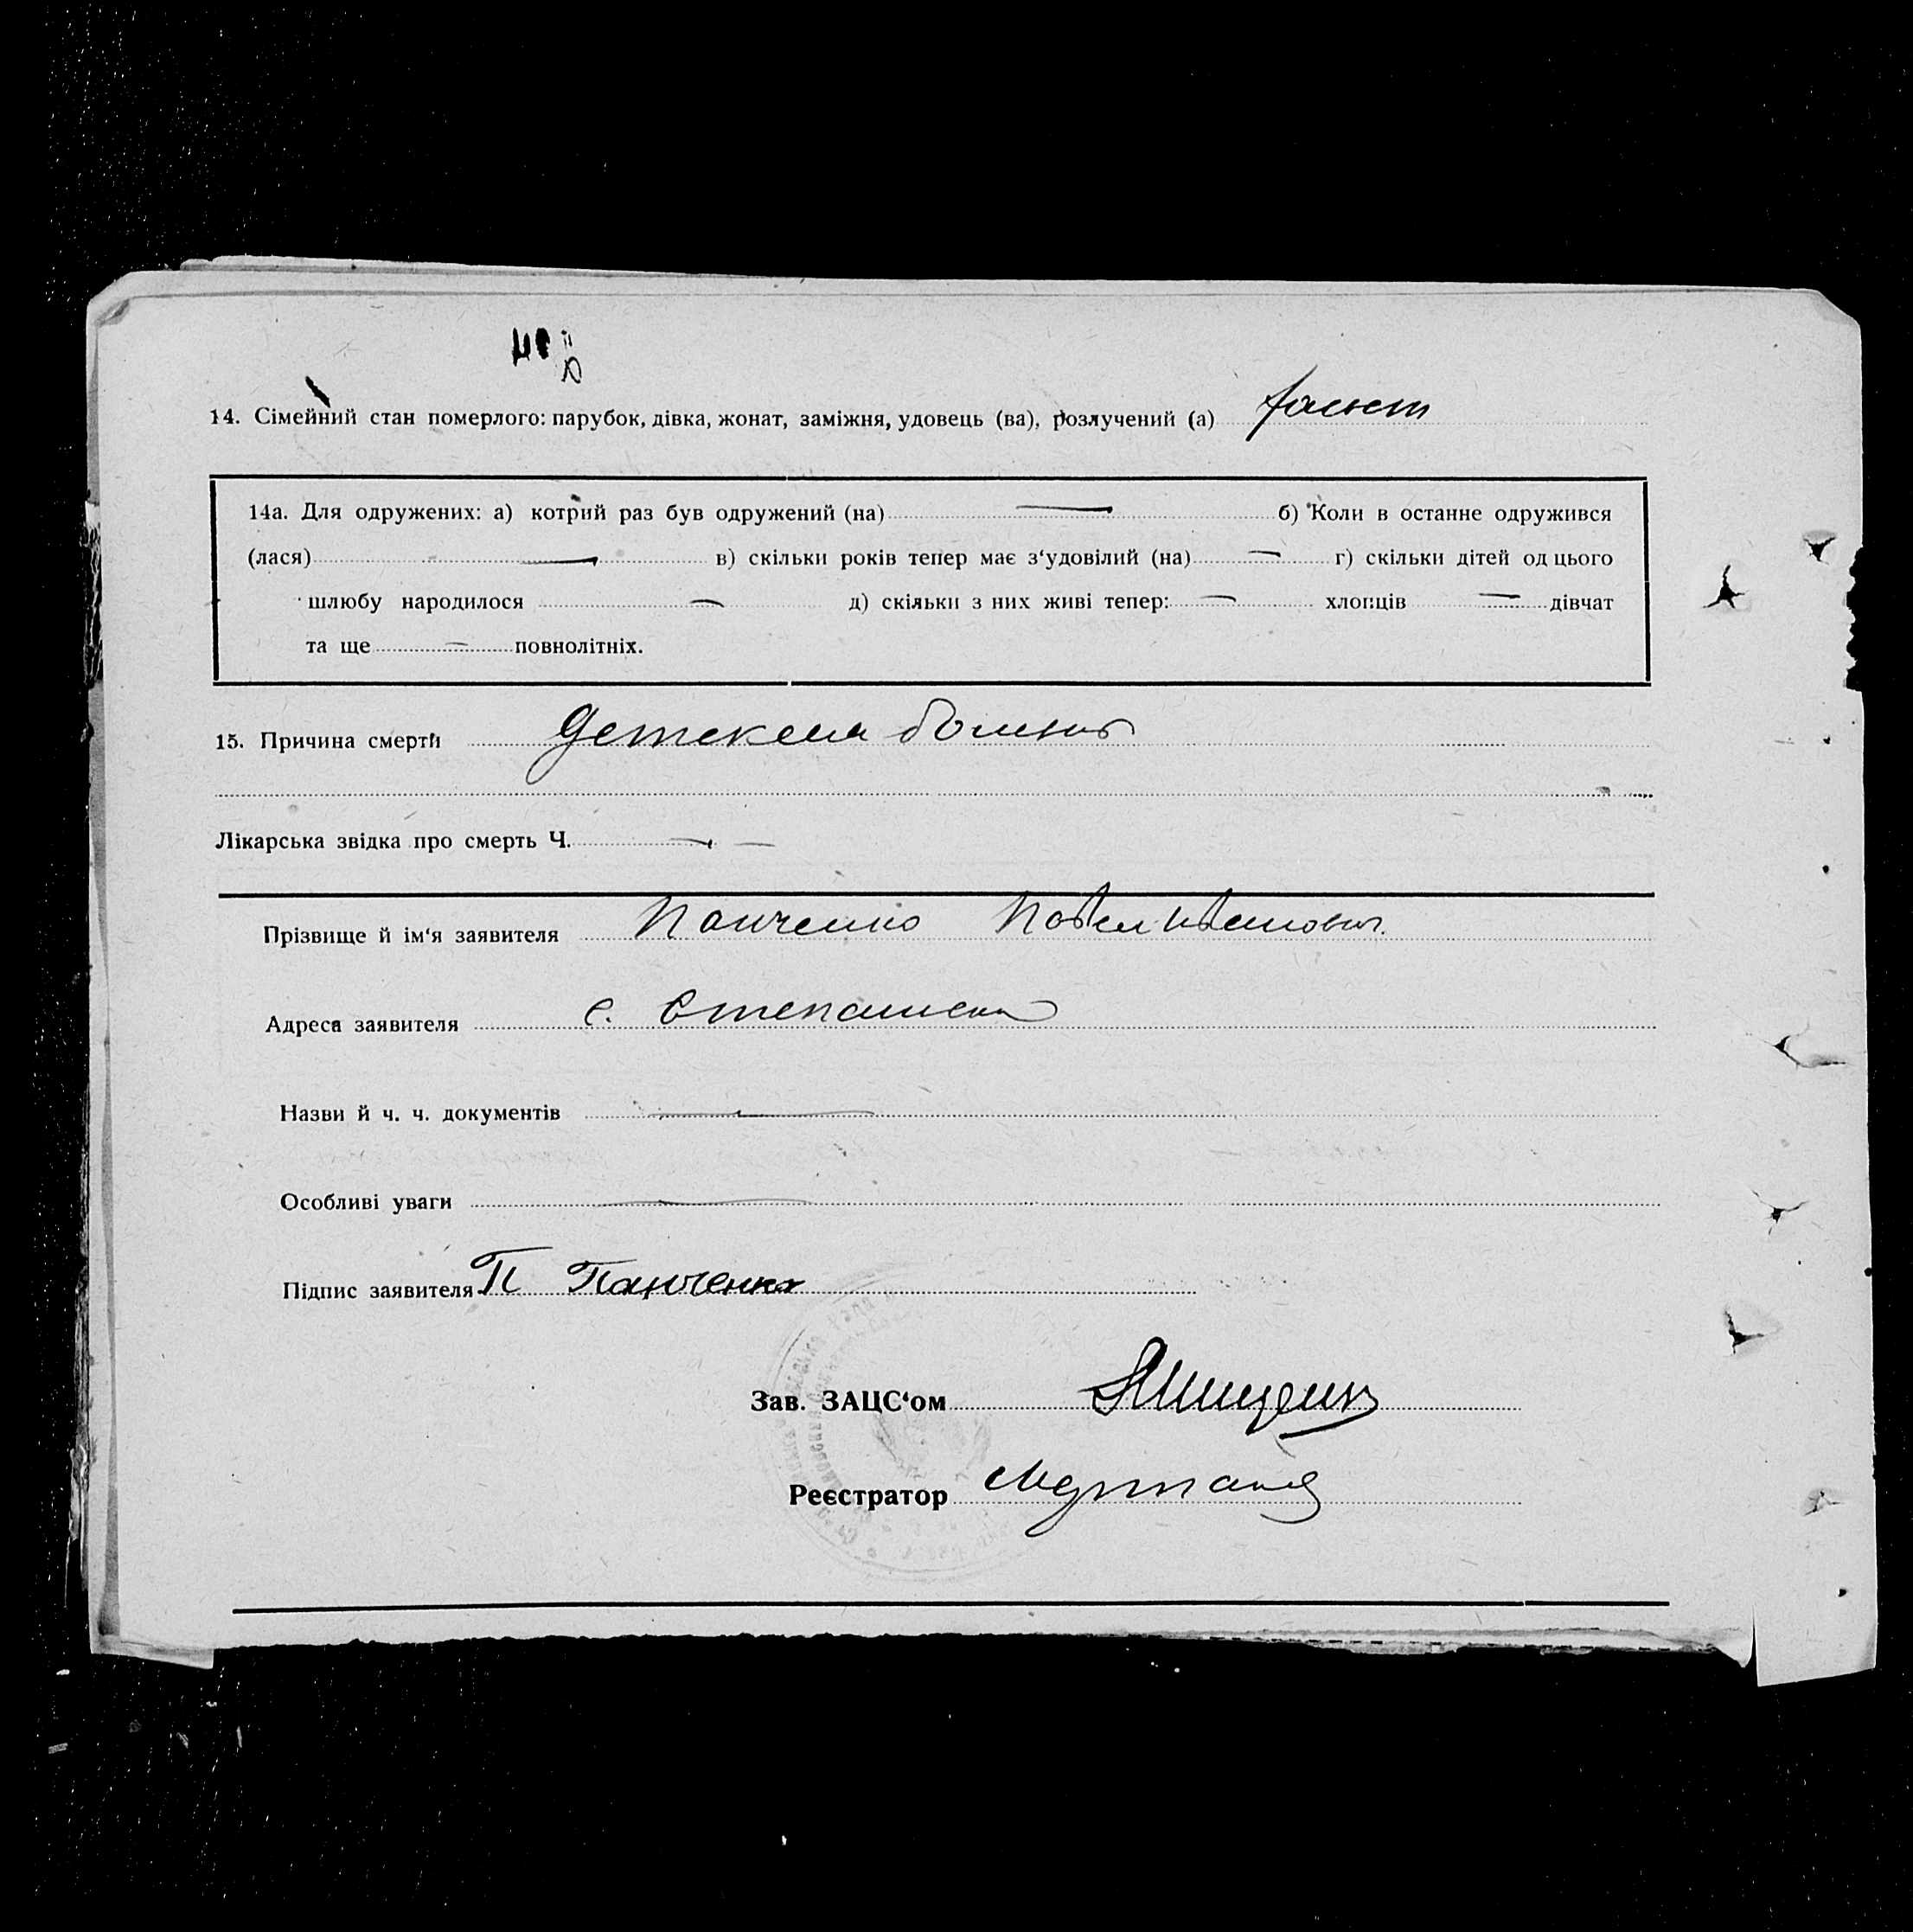 14. Сімейний стан померлого: парубок, дівка, жонат, заміжня, удовець (ва), розлучений (а)
14а. Для одружених: а) котрий раз був одружений (на) — б) Коли в останне одружився
(лася) — в) скільки років тепер має з‘удовілий (на) — г) скільки дітей од цього
шлюбу народилося — д) скільки з них живі тепер: — хлопців — дівчат
та ще — повнолітніх.
15. Причина смерти Детская болезнь
Лікарська звідка про смерть Ч. — —
Прізвище й ім‘я заявителя Панченко Павел Иванович.
Адреса заявителя с. Степановка
Назви й ч. ч. документів —
Особливі уваги —
Підпис заявителя П Панченко
Зав. ЗАЦС‘ом
Реєстратор